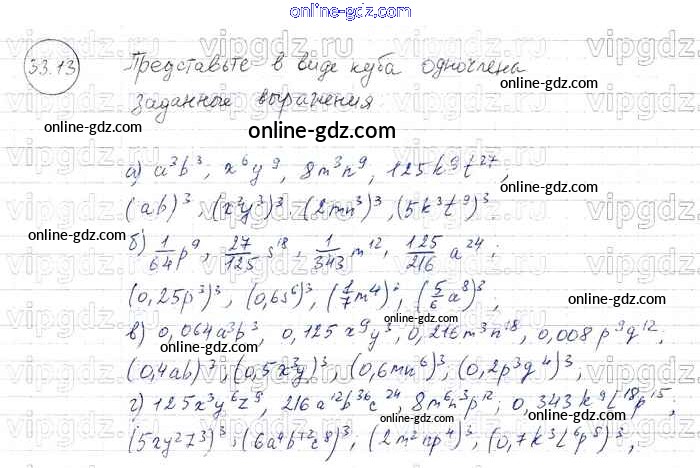 online-gdz.com
33.13 Представьте в виде куба одночлена
заданные выражения
online-gdz.com
online-gdz.com
а) a³b³, x⁶y⁹, 8m³n⁹, 125k⁹t²⁷,
online-gdz.com
(ab)³, (x²y³)³, (2mn³)³, (5k³t⁹)³.
online-gdz.com
б) 1/64 p⁹, 27/125 s¹⁸, 1/343 m¹², 125/216 a²⁴;
(0,25p³)³, (0,6s⁶)³, (1/7 m⁴)³, (5/6 a⁸)³,
online-gdz.com
online-gdz.com
в) 0,064a³b³, 0,125x⁹y³, 0,216m³n¹⁸, 0,008p⁹q¹²,
online-gdz.com
(0,4ab)³; (0,5x³y)³, (0,6mn⁶)³, (0,2p³q⁴)³,
online-gdz.com
г) 125x³y⁶z⁹, 216a¹²b³⁶c²⁴, 8m⁶n³p¹², 0,343k⁹l¹⁸p¹⁵;
online-gdz.com
(5xy²z³)³; (6a⁴b¹²c⁸)³, (2m²np⁴)³, (0,7k³l⁶p⁵)³,
online-gdz.com
online-gdz.com